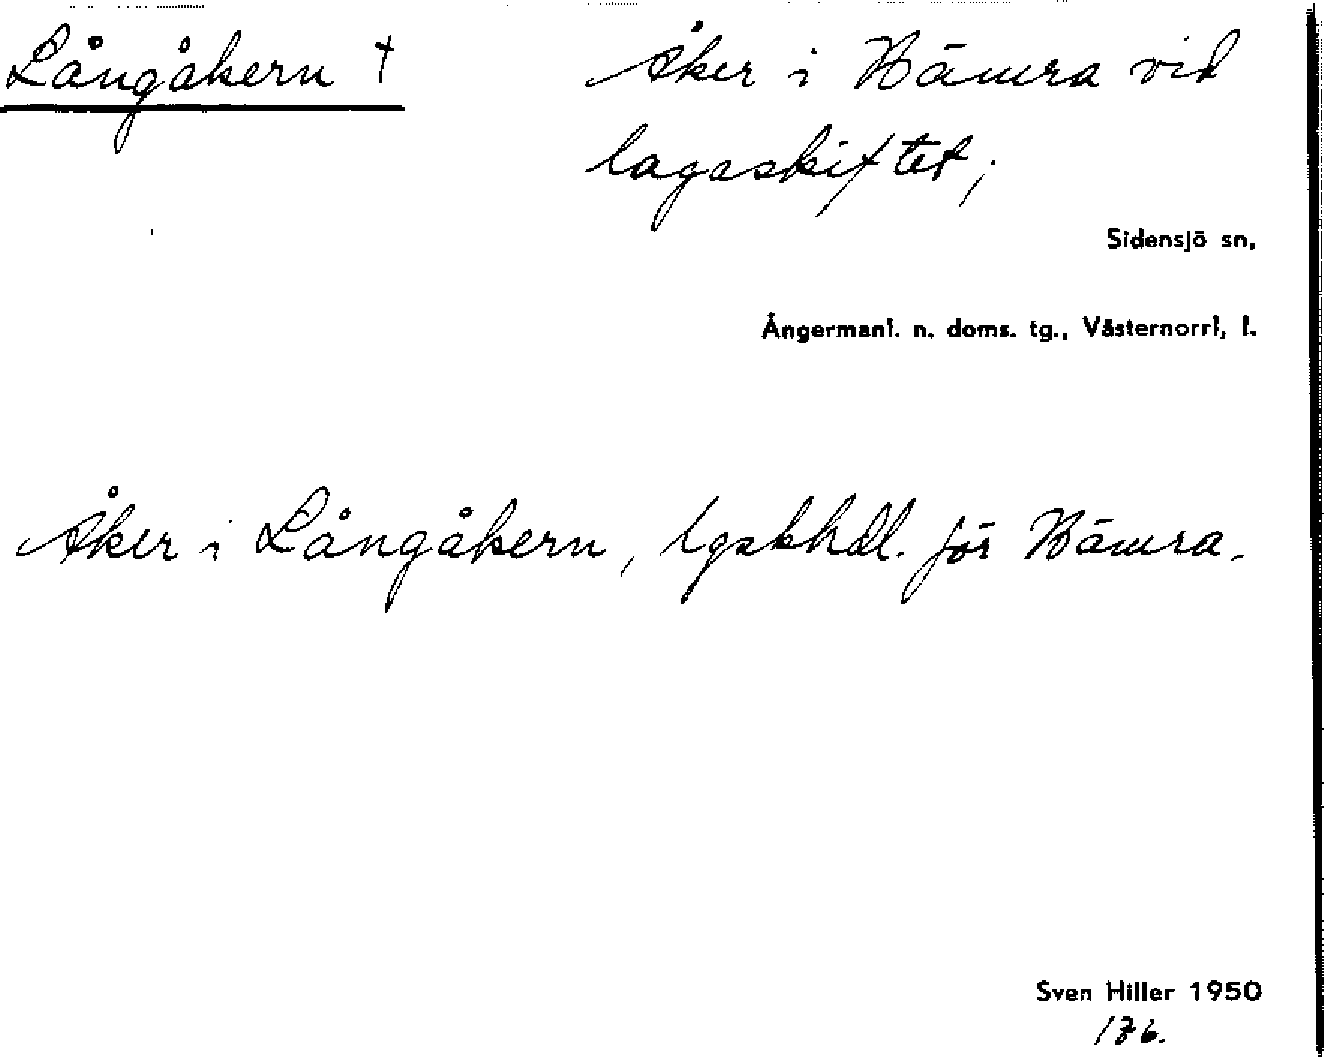 Långåkern †
Åker i Nämra vid
lagaskiftet;
Sidensjö sn,
Ångermanl. n. doms. tg., Västernorrl, l.
Åker i Långåkern, lgskhdl. för Nämra.
Sven Hiller 1950
176.